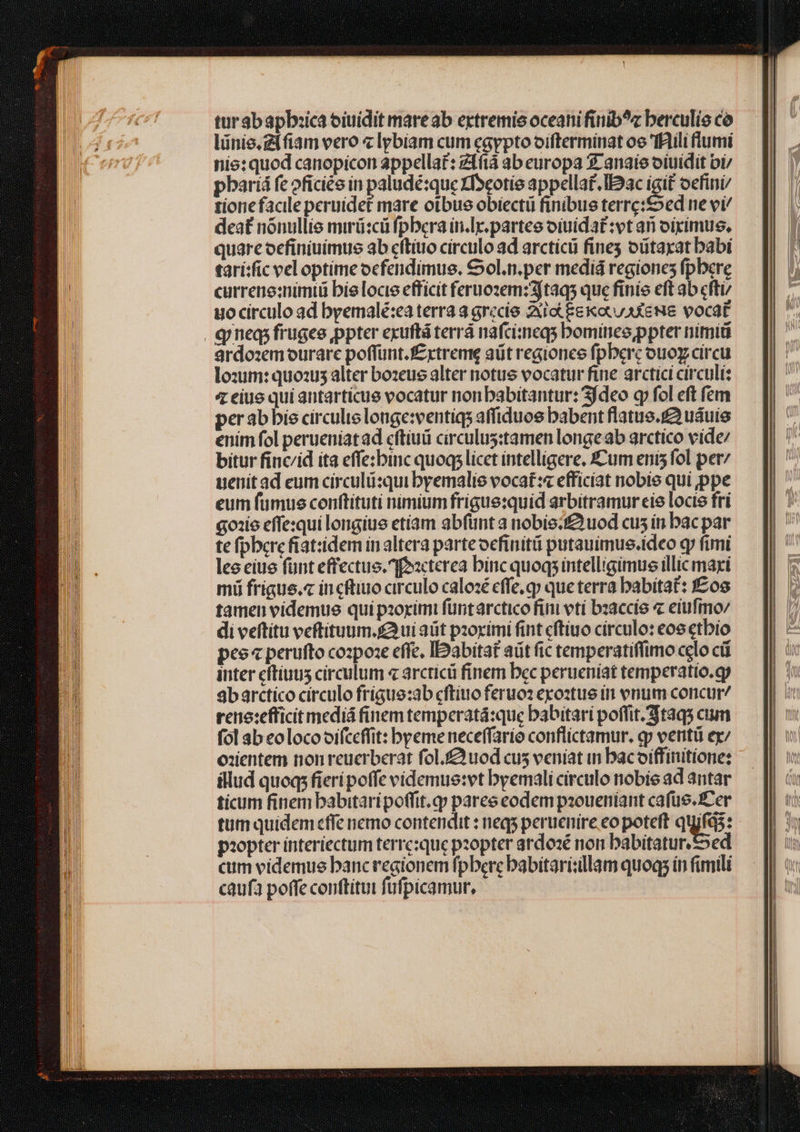 tur ab aphrica diuidit mare ab extremis oceani finibꝰ⁊ herculis co
lūnis. Asiam vero ⁊ lybiam cum egypto disterminat os Nili flumi
nis: quod canopicon appellat̄: Asiā ab europa Tanais diuidit bi/
phariā se oficiēs in paludē: que Meotis appellat̄. Hac igit̄ defini/
tione facile peruidet̄ mare oībus obiectū finibus terrę: Sed ne vi/
deat̄ nōnullis mirū: cū sphęra in .lx. partes diuidat̄: vt añ diximus,
quare definiuimus ab estiuo circulo ad arcticū fineꝫ dūtaxat habi
tari: sic vel optime defendimus. Sol .n. per mediā regioneꝫ sphere
currens: nimiū his locis efficit feruorem: Itaqꝫ que finis est ab esti/
uo circulo ad hyemalē: ea terra a grecis
vocat̄
ꝙ neqꝫ fruges ꝓpter exustā terrā nasci: neqꝫ homines ꝓpter nimiū
ardorem durare possunt. Extreme aūt regiones spherę duoꝝ circu
lorum: quoruꝫ alter boreus alter notus vocatur fine arctici circuli:
⁊ eius qui antarticus vocatur non habitantur: Ideo ꝙ sol est sem
per ab his circulis longe: ventiqꝫ assiduos habent flatus. Quāuis
enim sol perueniat ad estiuū circuluꝫ: tamen longe ab arctico vide/
bitur sine/id ita esse: hinc quoqꝫ licet intelligere. Cum eniꝫ sol per/
uenit ad eum circulū: qui hyemalis vocat̄: ⁊ efficiat nobis qui ꝓpe
eum sumus constituti nimium frigus: quid arbitramur eis locis fri
goris esse: qui longius etiam absunt a nobis: Quod cuꝫ in hac par
te sphere fiat: idem in altera parte definitū putauimus. ideo ꝙ simi
les eius sunt effectus. Preterea hinc quoqꝫ intelligimus illic maxi
mū frigus. ⁊ in estiuo circulo calorē esse. ꝙ que terra habitat̄: Eos
tamen videmus qui proximi sunt arctico fini vti braccis ⁊ eiusmo/
di vestitu vestituum. Qui aūt proximi sint estiuo circulo: eos ethio
pes ⁊ perusto corpore esse. Habitat̄ aūt sic temperatissimo celo cū
inter estiuuꝫ circulum ⁊ arcticū finem hec perueniat temperatio. ꝙ
ab arctico circulo frigus: ab estiuo feruor exortus in vnum concur/
rens: efficit mediā finem temperatā: que habitari possit. Itaqꝫ cum
sol ab eo loco discessit: hyeme necessario conflictamur. ꝙ ventū ex/
orientem non reuerberat sol. Quod cuꝫ veniat in hac diffinitione:
illud quoqꝫ fieri posse videmus: vt hyemali circulo nobis ad antar
ticum finem habitari possit. ꝙ pares eodem proueniant casus. Cer
tum quidem esse nemo contendit: neqꝫ peruenire eo potest quisqꝫ:
propter interiectum terrę: que propter ardorē non habitatur. Sed
cum videmus hanc regionem spherę habitari: illam quoqꝫ in simili
causa posse constitui suspicamur.